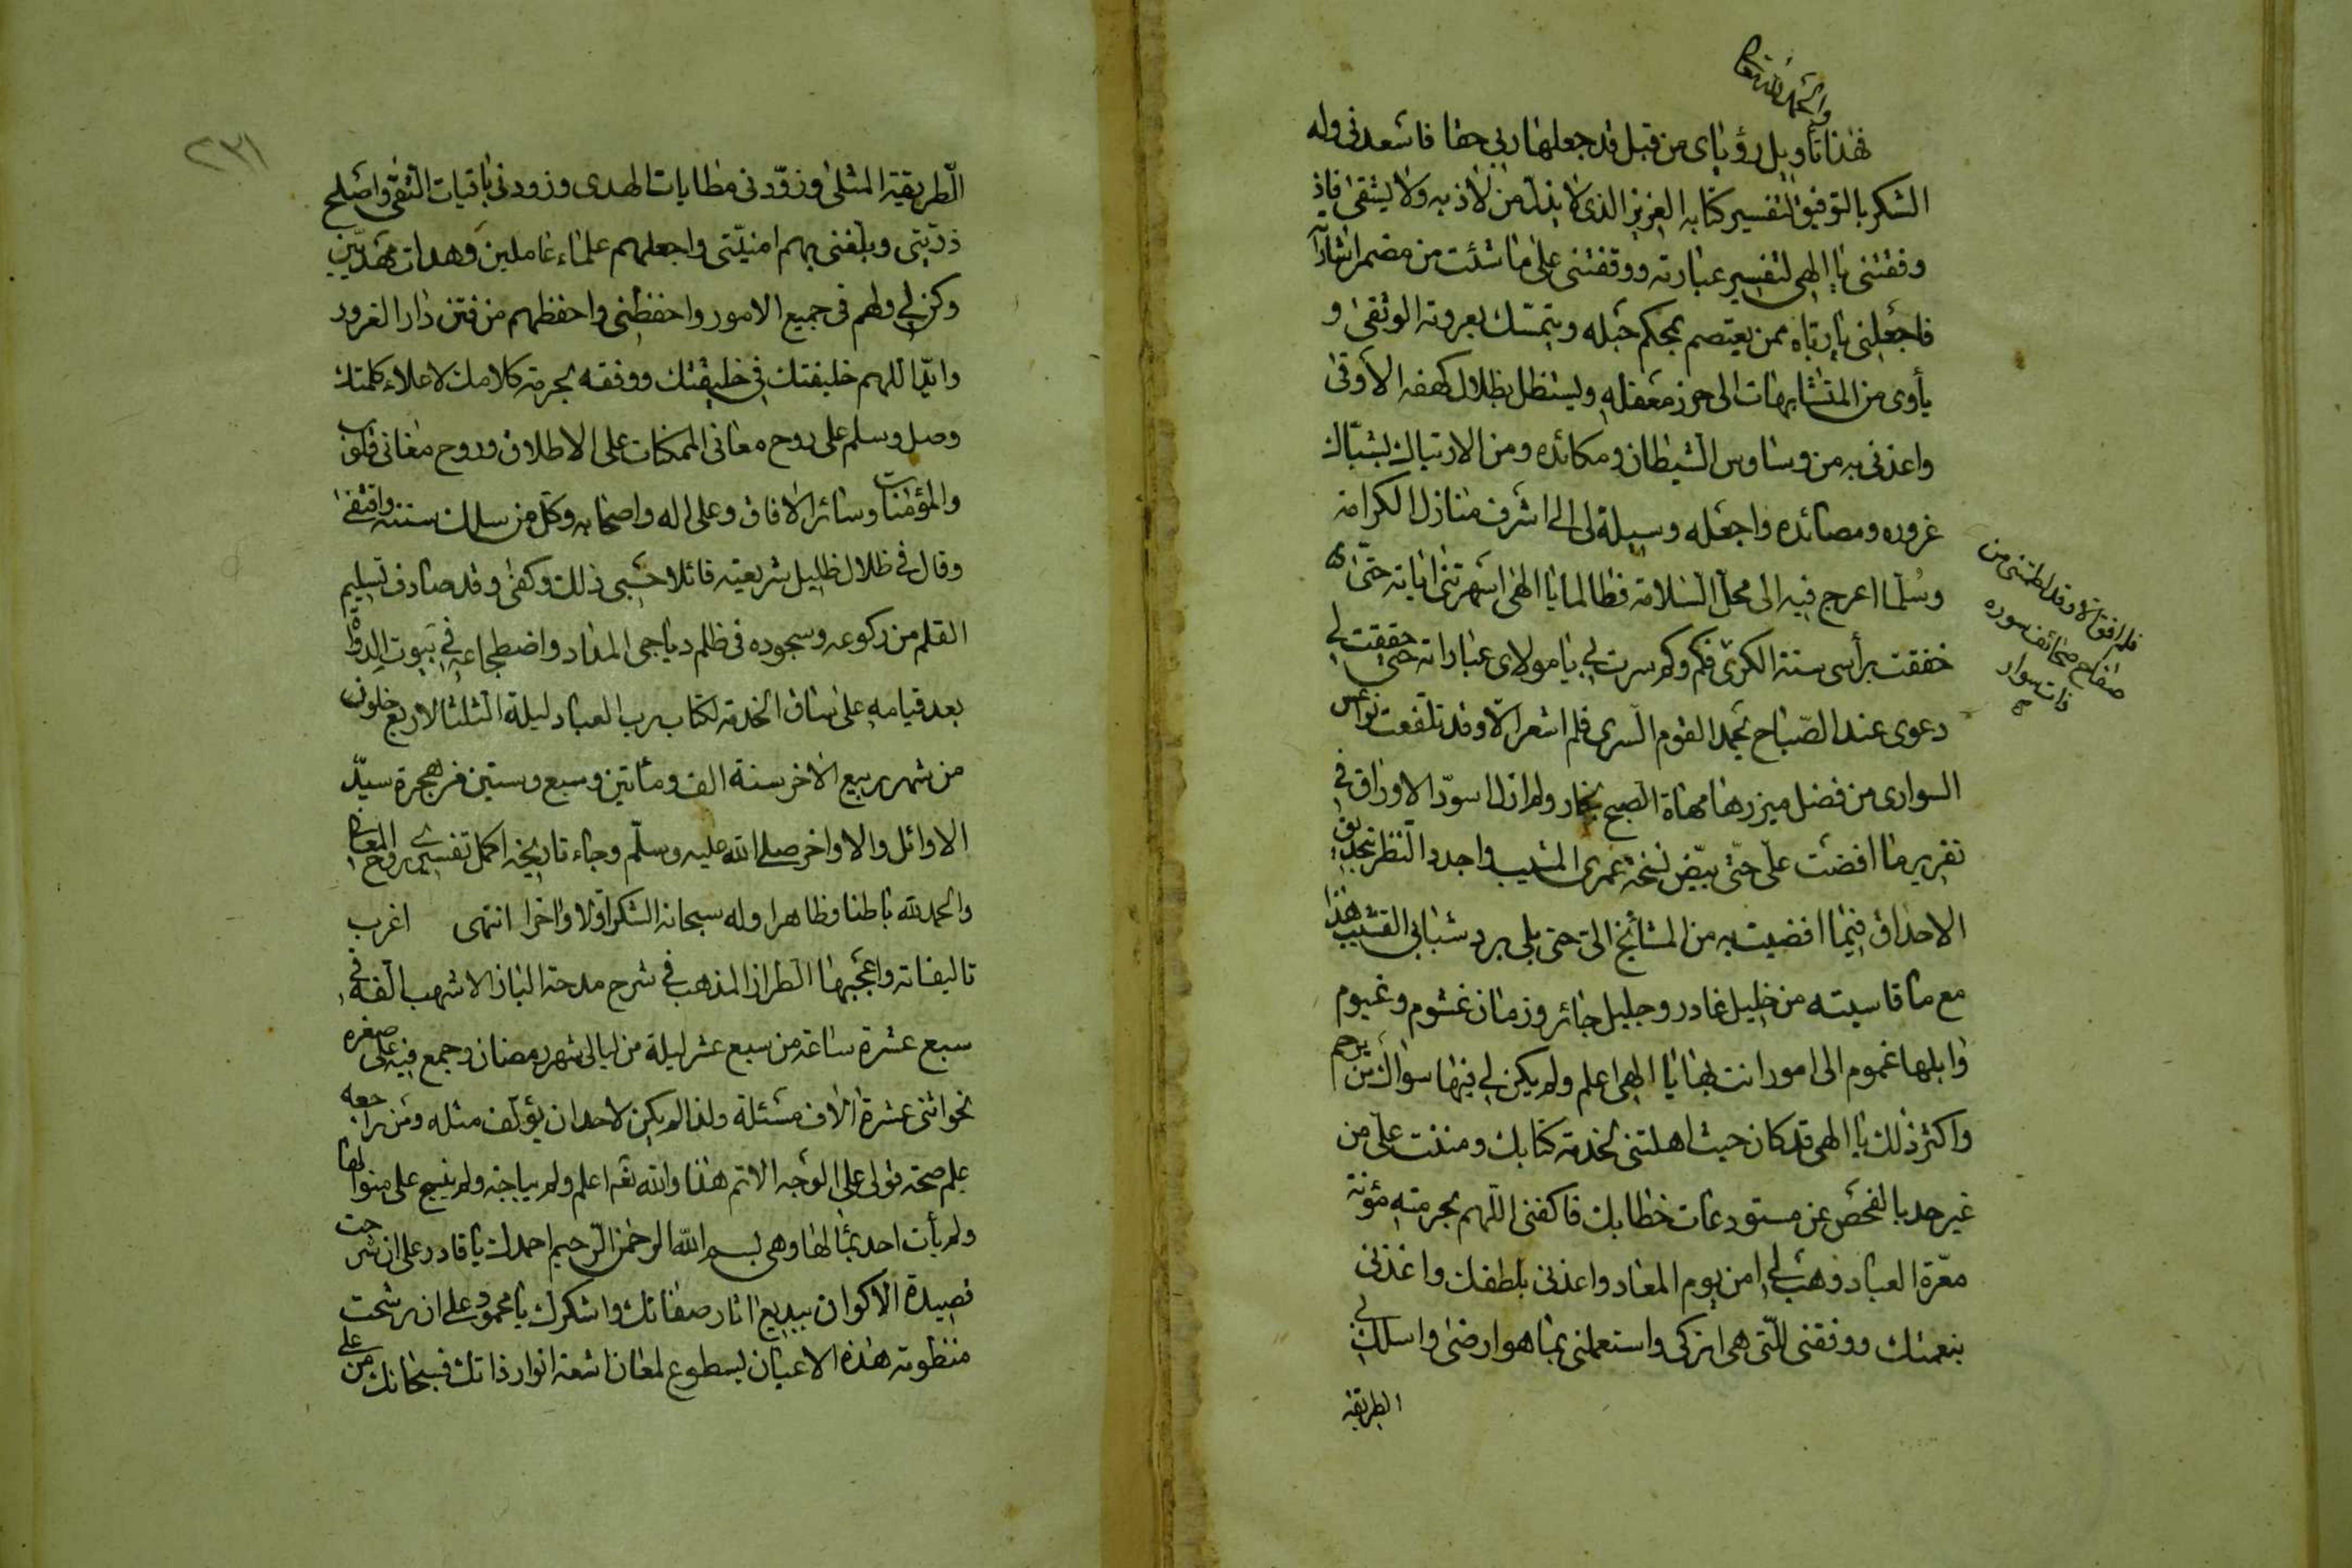 والحمد لله تعالى
فهذا تأويل رؤياى من قبل قد جعلها ربى حقا فاسعدنى وله
الشكر بالتوفيق لتفسير كتابه العزيز الذى لا يذل من لاذ به ولا يشقى فاذ
وفقتنى يا الهى لتفسير عبارته ووقفتنى على ما شئت من مضمر اشاراته
فاجعلنى يا رباه ممن يعتصم بمحكم حبله ويتمسك بعروته الوثقى و
يأوى من المتشابهات الى حرز معقله ويستظل بظلال كهفه الأوقى
واعذنى به من وساوس الشيطان ومكائده ومن الارتباك بشباك
غروره ومصائده واجعله وسيلة لى الى اشرف منازل الكرامة
وسلما اعرج فيه الى محل السلامة فطالما يا الهى اسهرتنى اياته حتى
خفقت برأسى سنة الكرى فكم وكم سرت بى يا مولاى عباراته حتى حققت لى
دعوى عند الصباح يحمد القوم السرى فلم اشعر الا وقد تلفعت نواعس
السوارى من فضل ميزرها مهاة الصبح بخمار ولم ازل اسود الاوراق فى
تقرير ما افضت على حتى بيض نسخة عمرى المشيب واجدد النظر بتحديق
الاحداق فيما افضيت به من المشائخ الى حتى بلى برد شبابى القشيب هذا
مع ما قاسيته من خليل غادر وجليل جائر وزمان غشوم وغيوم
وابلها غموم الى امور انت بها يا الهى اعلم ولم يكن لى فيها سواك من يرحم
واكثر ذلك يا الهى قد كان حيث اهلتنى لخدمة كتابك ومننت على من
غير حد بالفحص عن مستودعات خطابك فاكفنى اللهم بحرمته مؤنة
معرة العباد وهب لى امن يوم المعاد واعذنى بلطفك واغذنى
بنعمتك ووفقنى للتى هى ازكى واستعملنى بما هو ارضى واسلك بى
الطريقة
فلم افق الا وقد لطمتنى من
صفاح صحائف سوره
ذات سوار
صح
٢٣١
الطريقة المثلى وزودنى مطايات الهدى وزودنى باقيات التقى واصلح
ذريتى وبلغنى بهم امنيتى واجعلهم علماء عاملين وهداة مهديين
وكن لى ولهم فى جميع الامور واحفظنى واحفظهم من فتن دار الغرور
وايد اللهم خليفتك فى خليقتك ووفقه بحرمة كلامك لاعلاء كلمتك
وصل وسلم على روح معانى الممكنات على الاطلاق وروح مغانى قلوب
والمؤمنات وسائر الافاق وعلى اله واصحابه وكل من سلك سننه واقتفى
وقال فى ظلال ظليل شريعته قائلا حسبى ذلك وكفى وقد صادف تسليم
القلم من ركوعه وسجوده فى ظلم دياجى المداد واضطجاعه فى بيوت الدواة
بعد قيامه على ساق الخدمة لكتاب رب العباد ليلة الثلثا لاربع خلون
من شهر ربيع الاخر سنة الف ومأتين وسبع وستين من هجرة سيد
الاوائل والاواخر صلى الله عليه وسلم وجاء تاريخه اكمل تفسيرى روح المعانى
والحمد لله باطنا وظاهرا وله سبحانه الشكر اولا واخرا انتهى اغرب
تاليفاته واعجبها الطراز المذهب فى شرح مدحة الباز الاشهب الفه فى
سبع عشرة ساعة من سبع عشر ليلة من ليالى شهر رمضان وجمع فيه على صغره
نحو اثنى عشرة الاف مسئلة ولذا لم يكن لاحد ان يؤلف مثله ومن راجعه
علم صحة قولى على الوجه الاتم هذا والله تعه اعلم ولم ينسج على منوالها
ولم يأت احد بمثالها وهى بسم الله الرحمن الرحيم احمدك يا قادر على ان شرحت
قصيدة الاكوان ببديع اثار صفاتك واشكرك يا محمود على ان رشحت
منظومة هذه الاعيان بسطوع لمعان اشعة انوار ذاتك فسبحانك من على